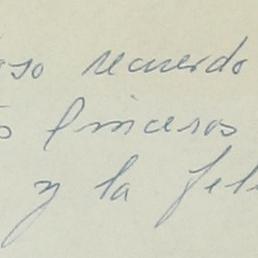 oso recuerdo
s sinceros
y la feli